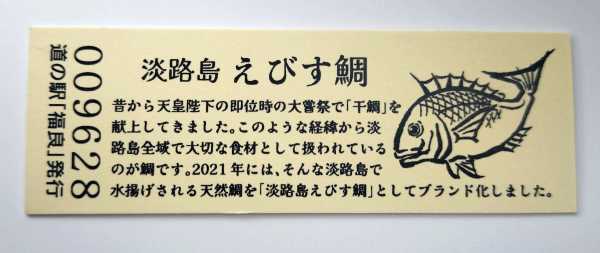 淡路島 えびす鯛
昔から天皇陛下の即位時の大嘗祭で「干鯛」を
献上してきました。このような経緯から淡
路島全域で大切な食材として扱われている
のが鯛です。2021年には、そんな淡路島で
水揚げされる天然鯛を「淡路島えびす鯛」としてブランド化しました。
009628
道の駅「福良」発行